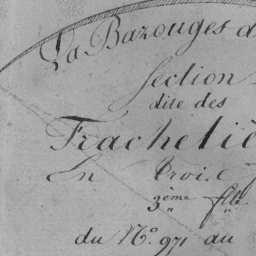 La Bazouges d
Section
dite des
Tracheliè
En Trois
3ème flle
du No. 971 au